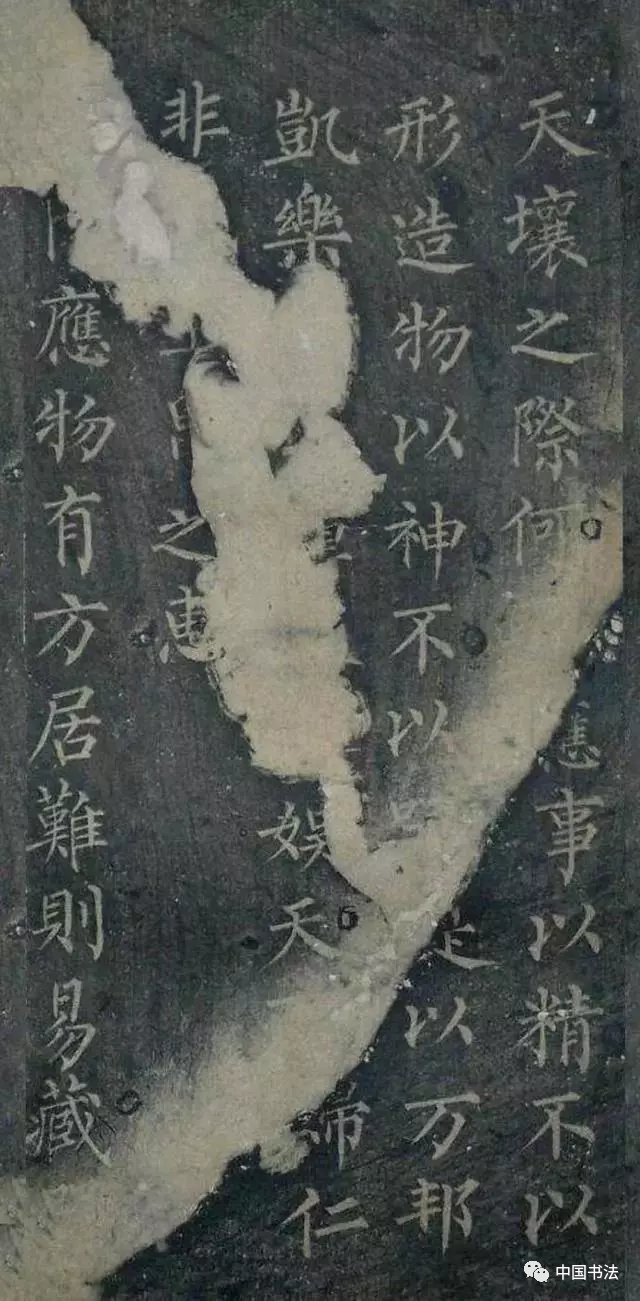 天壤之際何事以精不以
形造物以神不以是以万邦
凱樂娱天歸仁
非之惠
應物有方居難則易藏
中国书法